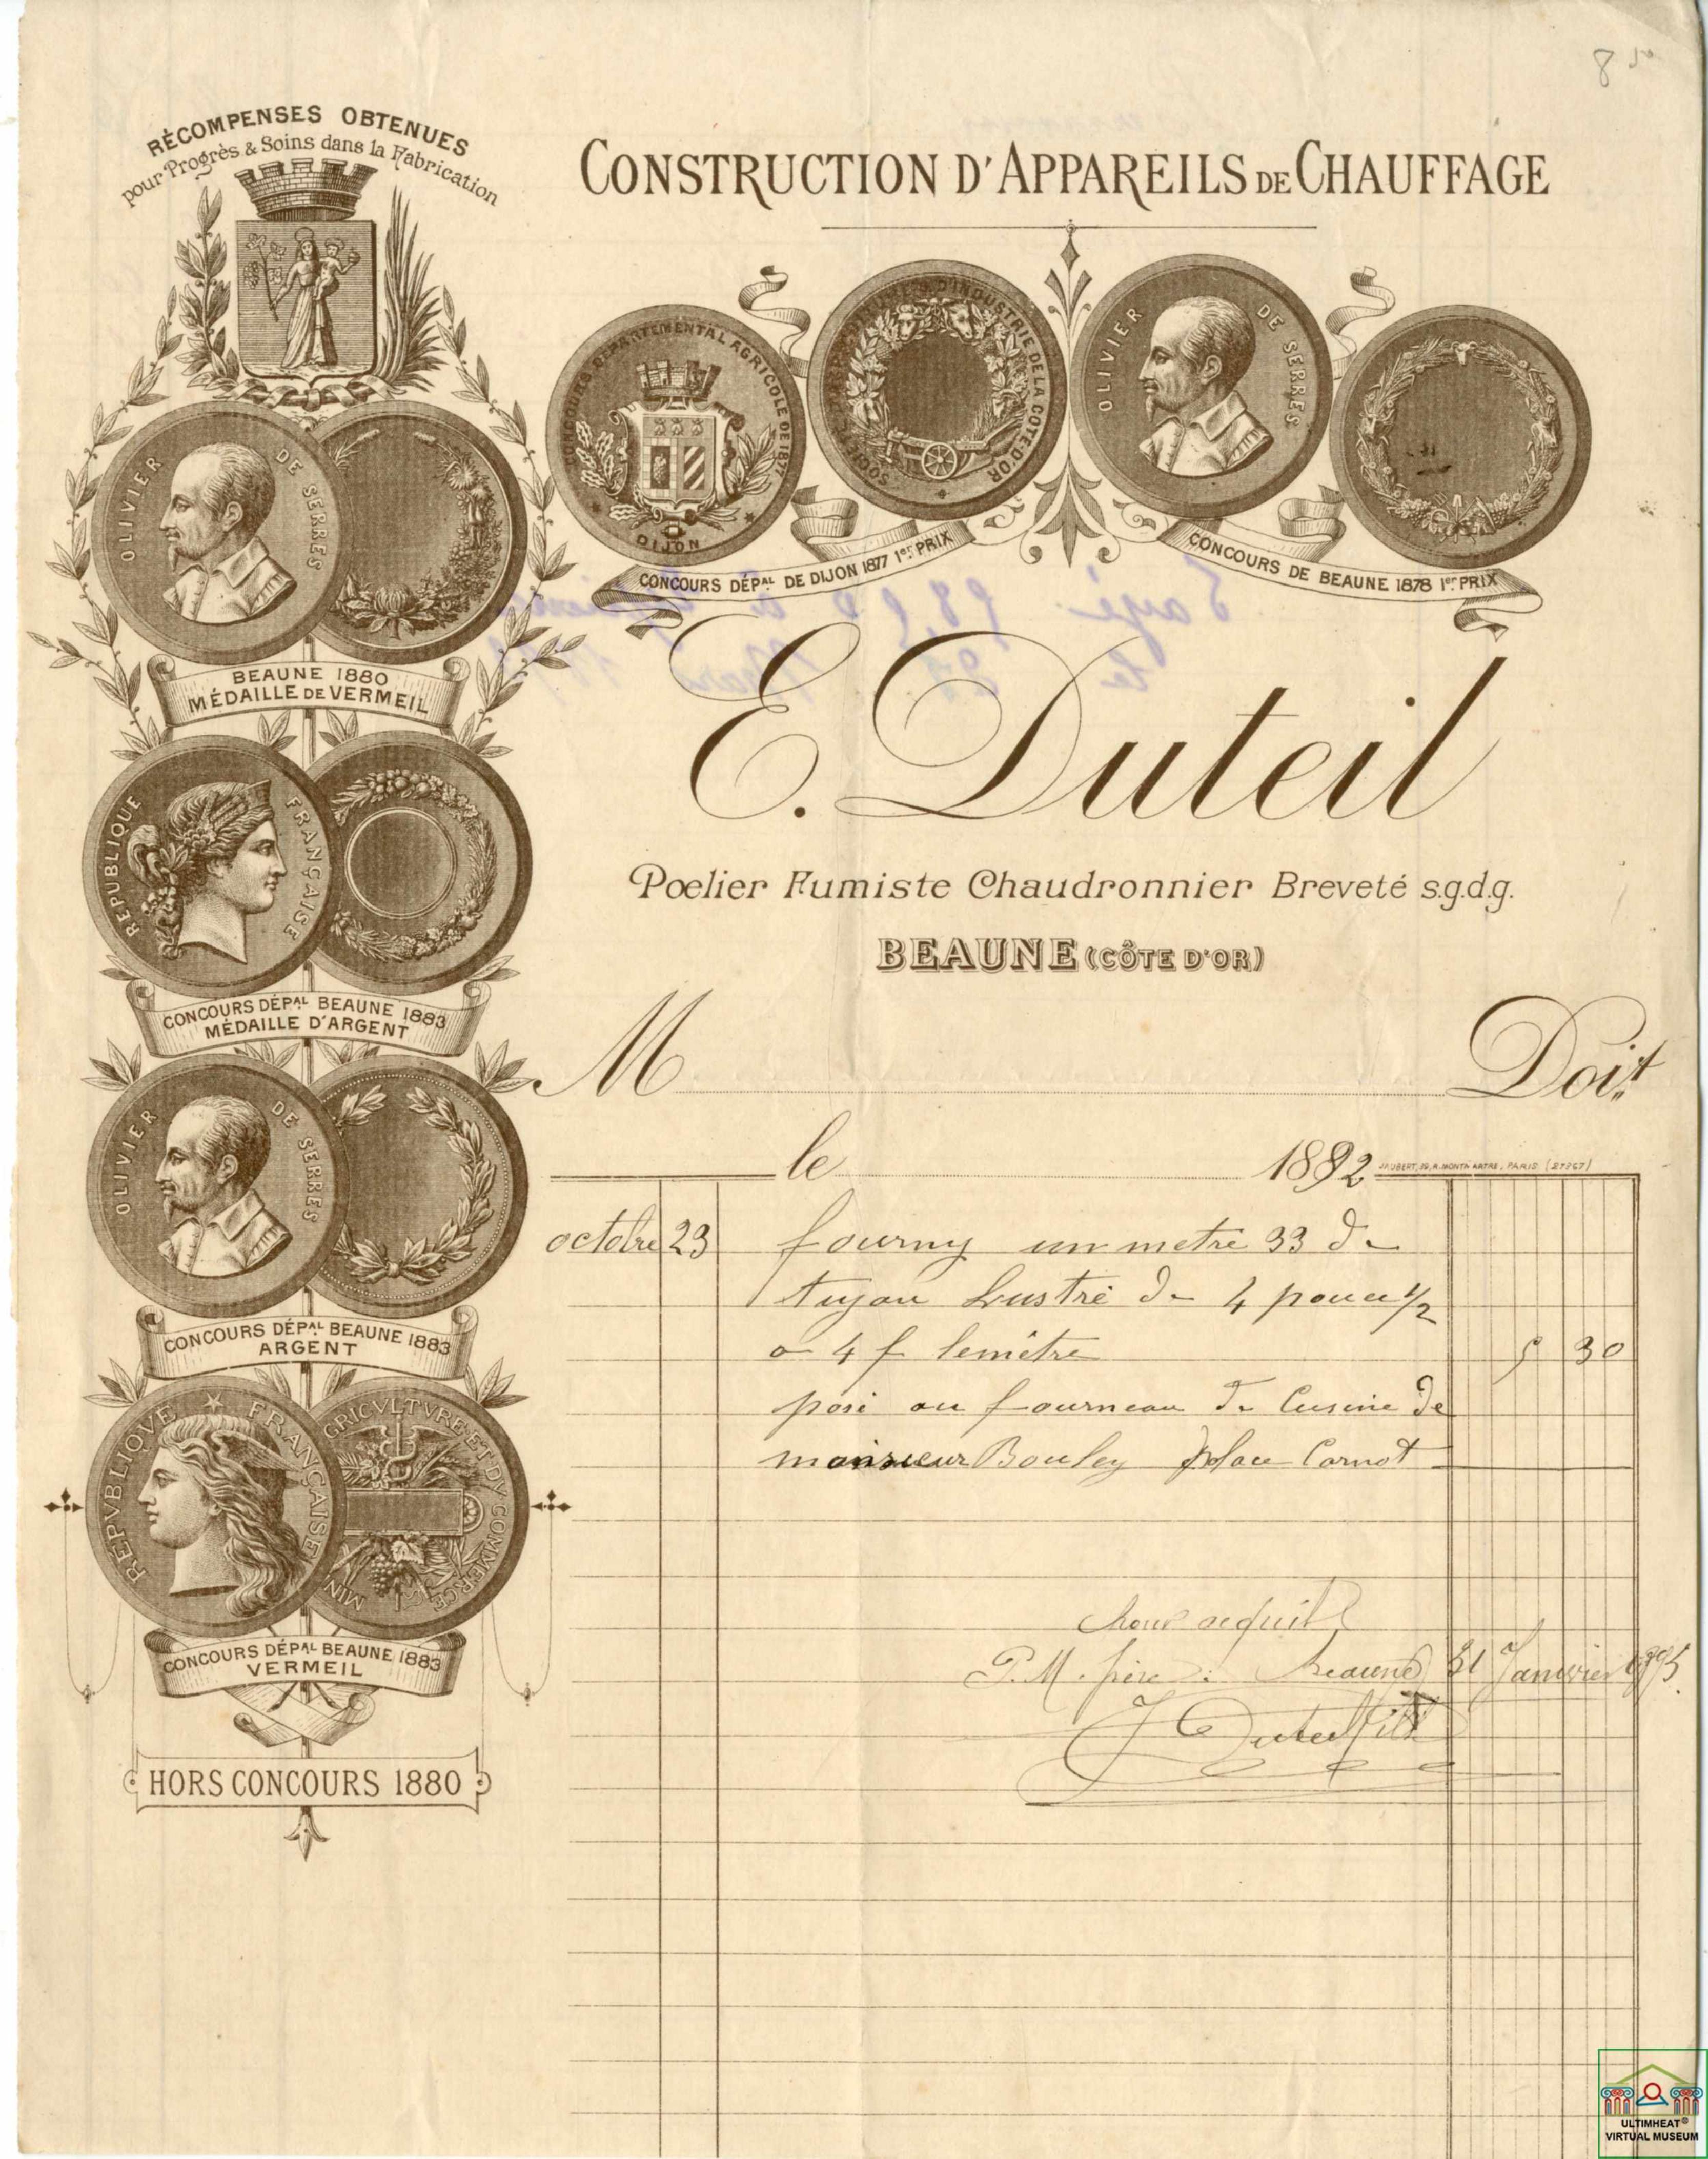 8 50
RÉCOMPENSES OBTENUES
pour Progrès & Soins dans la Fabrication
CONSTRUCTION D'APPAREILS DE CHAUFFAGE
CONCOURS DÉPARTEMENTAL AGRICOLE DE 1877
DIJON
D'INDUSTRIE DE LA CÔTE-D'OR
OLIVIER DE SERRES
CONCOURS DÉPAL DE DIJON 1877 1er PRIX
CONCOURS DE BEAUNE 1878 1er PRIX
OLIVIER DE SERRES
BEAUNE 1880
MÉDAILLE DE VERMEIL
E. Duteil
Poelier Fumiste Chaudronnier Breveté s.g.d.g.
BEAUNE (CÔTE D'OR)
REPUBLIQUE FRANÇAISE
CONCOURS DÉPAL BEAUNE 1883
MÉDAILLE D'ARGENT
M Doit
le 1892
JAUBERT, PARIS
OLIVIER DE SERRES
CONCOURS DÉPAL BEAUNE 1883
ARGENT
octobre 23 fourny un metre 33 de
tuyau Lustré de 4 pouce 1/2
a 4 f le mêtre 5 30
posé au fourneau de Cuisine de
monsieur Bouley place Carnot
REPVBLIQVE FRANÇAISE
AGRICVLTVRE ET DV COMMERCE
MIN
CONCOURS DÉPAL BEAUNE 1883
VERMEIL
HORS CONCOURS 1880
Pour acquit
P. M. frère Beaune 31 Janvier 1895
Duteil fils
ULTIMHEAT®
VIRTUAL MUSEUM